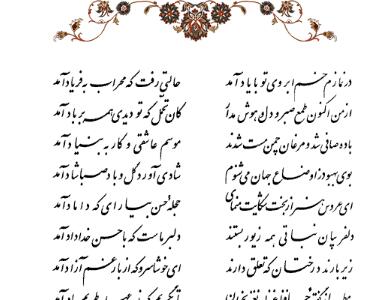 در نمازم خم ابروی تو با یاد آمد حالتی رفت که محراب به فریاد آمد
از من اکنون طمع صبر و دل و هوش مدار کان تحمل که تو دیدی همه بر باد آمد
باده صافی شد و مرغان چمن مست شدند موسم عاشقی و کار به بنیاد آمد
بوی بهبود ز اوضاع جهان می‌شنوم شادی آورد گل و باد صبا شاد آمد
ای عروس هنر از بخت شکایت منمای حجله حسن بیارای که داماد آمد
دلفریبان نباتی همه زیور بستند دلبر ماست که با حسن خداداد آمد
زیر بارند درختان که تعلق دارند ای خوشا سرو که از بار غم آزاد آمد